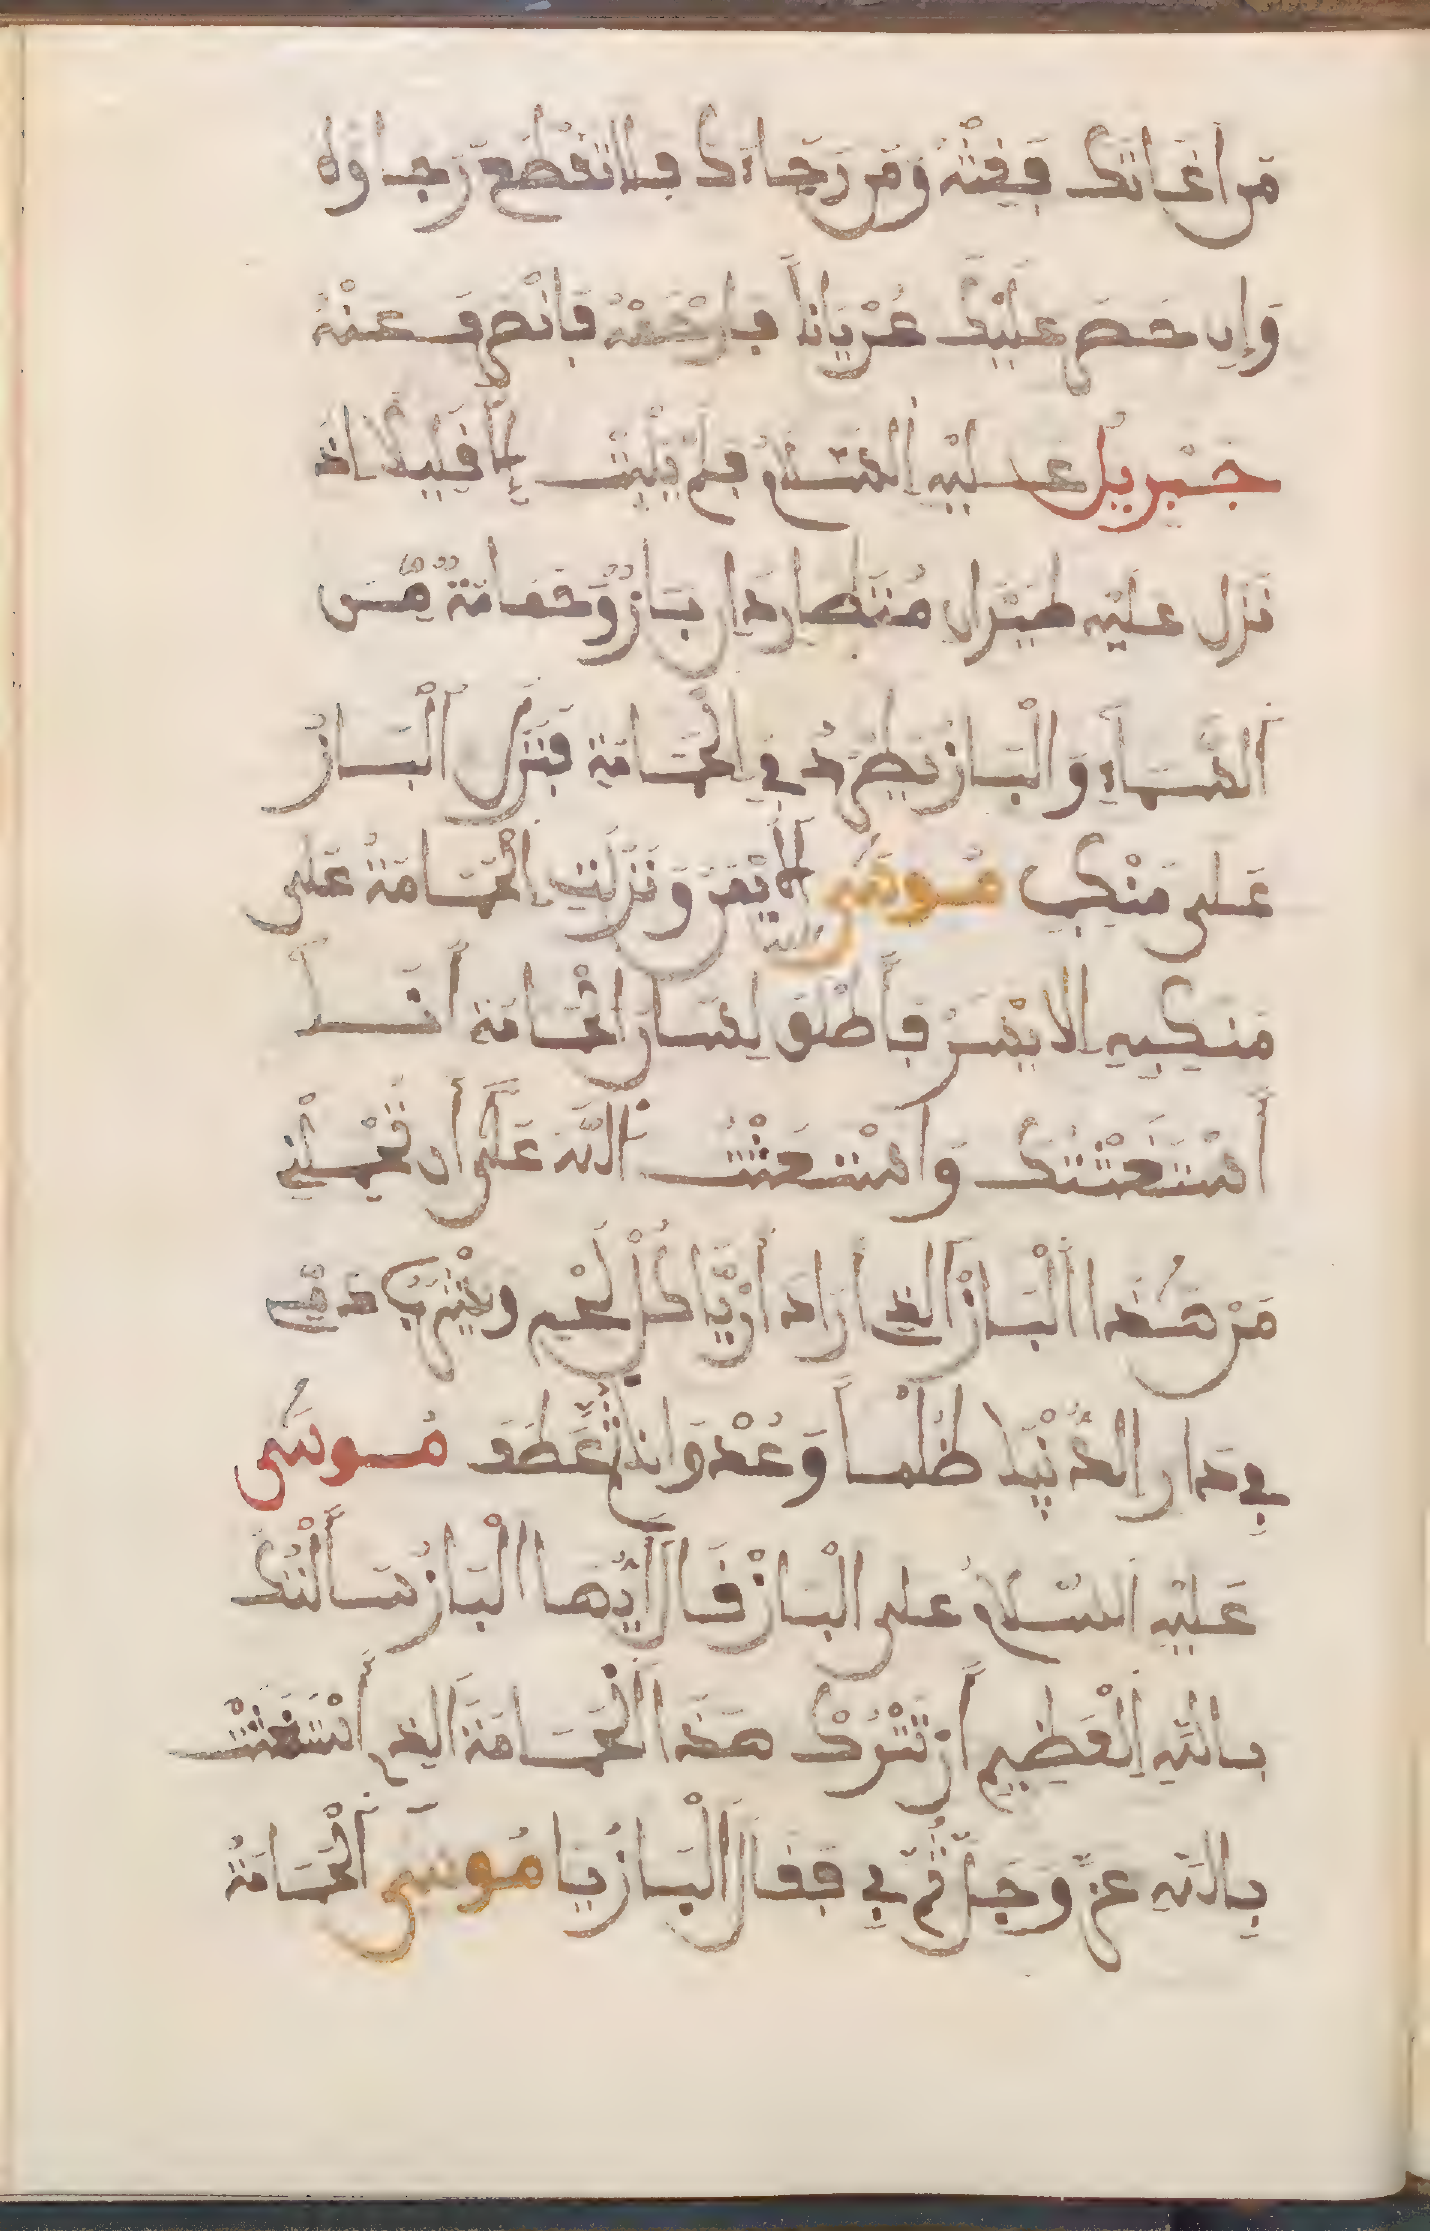 مَن اغَاثَكَ فَغِثْهُ وَمَن رَجَاءَكَ فلا تقطع رجاوه
وَإِن حَصَ عَلَيْكَ عُرْيَاناً فارْحَمْهُ فَانْصَرَفَ عَنْهُ
جِبْرِيلُ عَلَيْهِ السَّلَامُ فلم يَلْبَثْ إِلَّا قَلِيلًا اذ
نَزَل عَلَيْهِ طَيْرَان مُنتَطَاردَان بَازٌ وَحَمَامَةٌ مِّنَ
السَّمَاءِ وَالْبَاز يَطْرُدُ فِي الْحَمَامَةِ فَنَزَل الْبَازْ
عَلى مَنْكِبِ مُوسَى الايْمَن وَنَزَلَتِ الْحَمَامَةُ عَلى
مَنكِبِهِ الايْسَرْ فَأَطْلَقَ لِسَان الْحَمَامَة أَنَا
أَسْتَغَثْتُكَ وَاسْتَغَثْتُ اللَّه عَلَى أَن تَحْمِلْنِي
مَنْ هَذَا الْبَازْ الذي ارَادَ أَنْ يَّاكُلْ لَحْمِ وَيَشْرَبُ دَمِّي
فِي دَار الدُّنْيَا ظُلْماً وَعُدْوَاناً ثُمَّ عَطَفَ مُوسَى
عَلَيْهِ السَّلَامُ عَلى الْبَازْ فَقَالَ أَيُّهَا الْبَازُ سَأَلْتُكَ
بِاللَّهِ الْعَظِيمِ أَنْ تَتْرُكْ هَذَه الْحَمَامَةَ الذي أَسْتَغَثَتْ
بِاللَّهِ عَزَّ وَجَلَّ ثُمَّ بِي فَقَالَ الْبَازُ يَا مُوسَى الْحَمَامَةُ